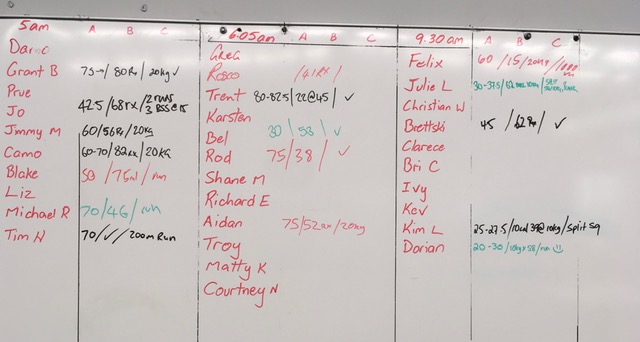 5am A B C
Dar c
Grant B 75→/80Rx/20kg✓
Prue
Jo 42.5/68rx/2 runs 3 Bss @ 15
Jimmy M 60/56Rx/20KG
Camo 60-70/82rx/20KG
Blake 50/75 /run
Liz
Michael R 70/46/run
Tim W 70/✓/200m Run
6:05am A B C
Greg
Rosco /41RX/
Trent 80-82.5/22@45/✓
Karsten
Bel 30/58/✓
Rod 75/38/✓
Shane M
Richard E
Aidan 75/52rx/20kg
Troy
Matty K
Courtney N
9.30am A B C
Felix 60/15/20kg/
Julie L 30-37.5/62 /split
Christian W
Brettski 45/62Rx/✓
Clarece
Bri C
Ivy
Kev
Kim L 25-27.5/ 39@10kg/Split Sq
Dorian 20-30/10kg x 58/run ☺